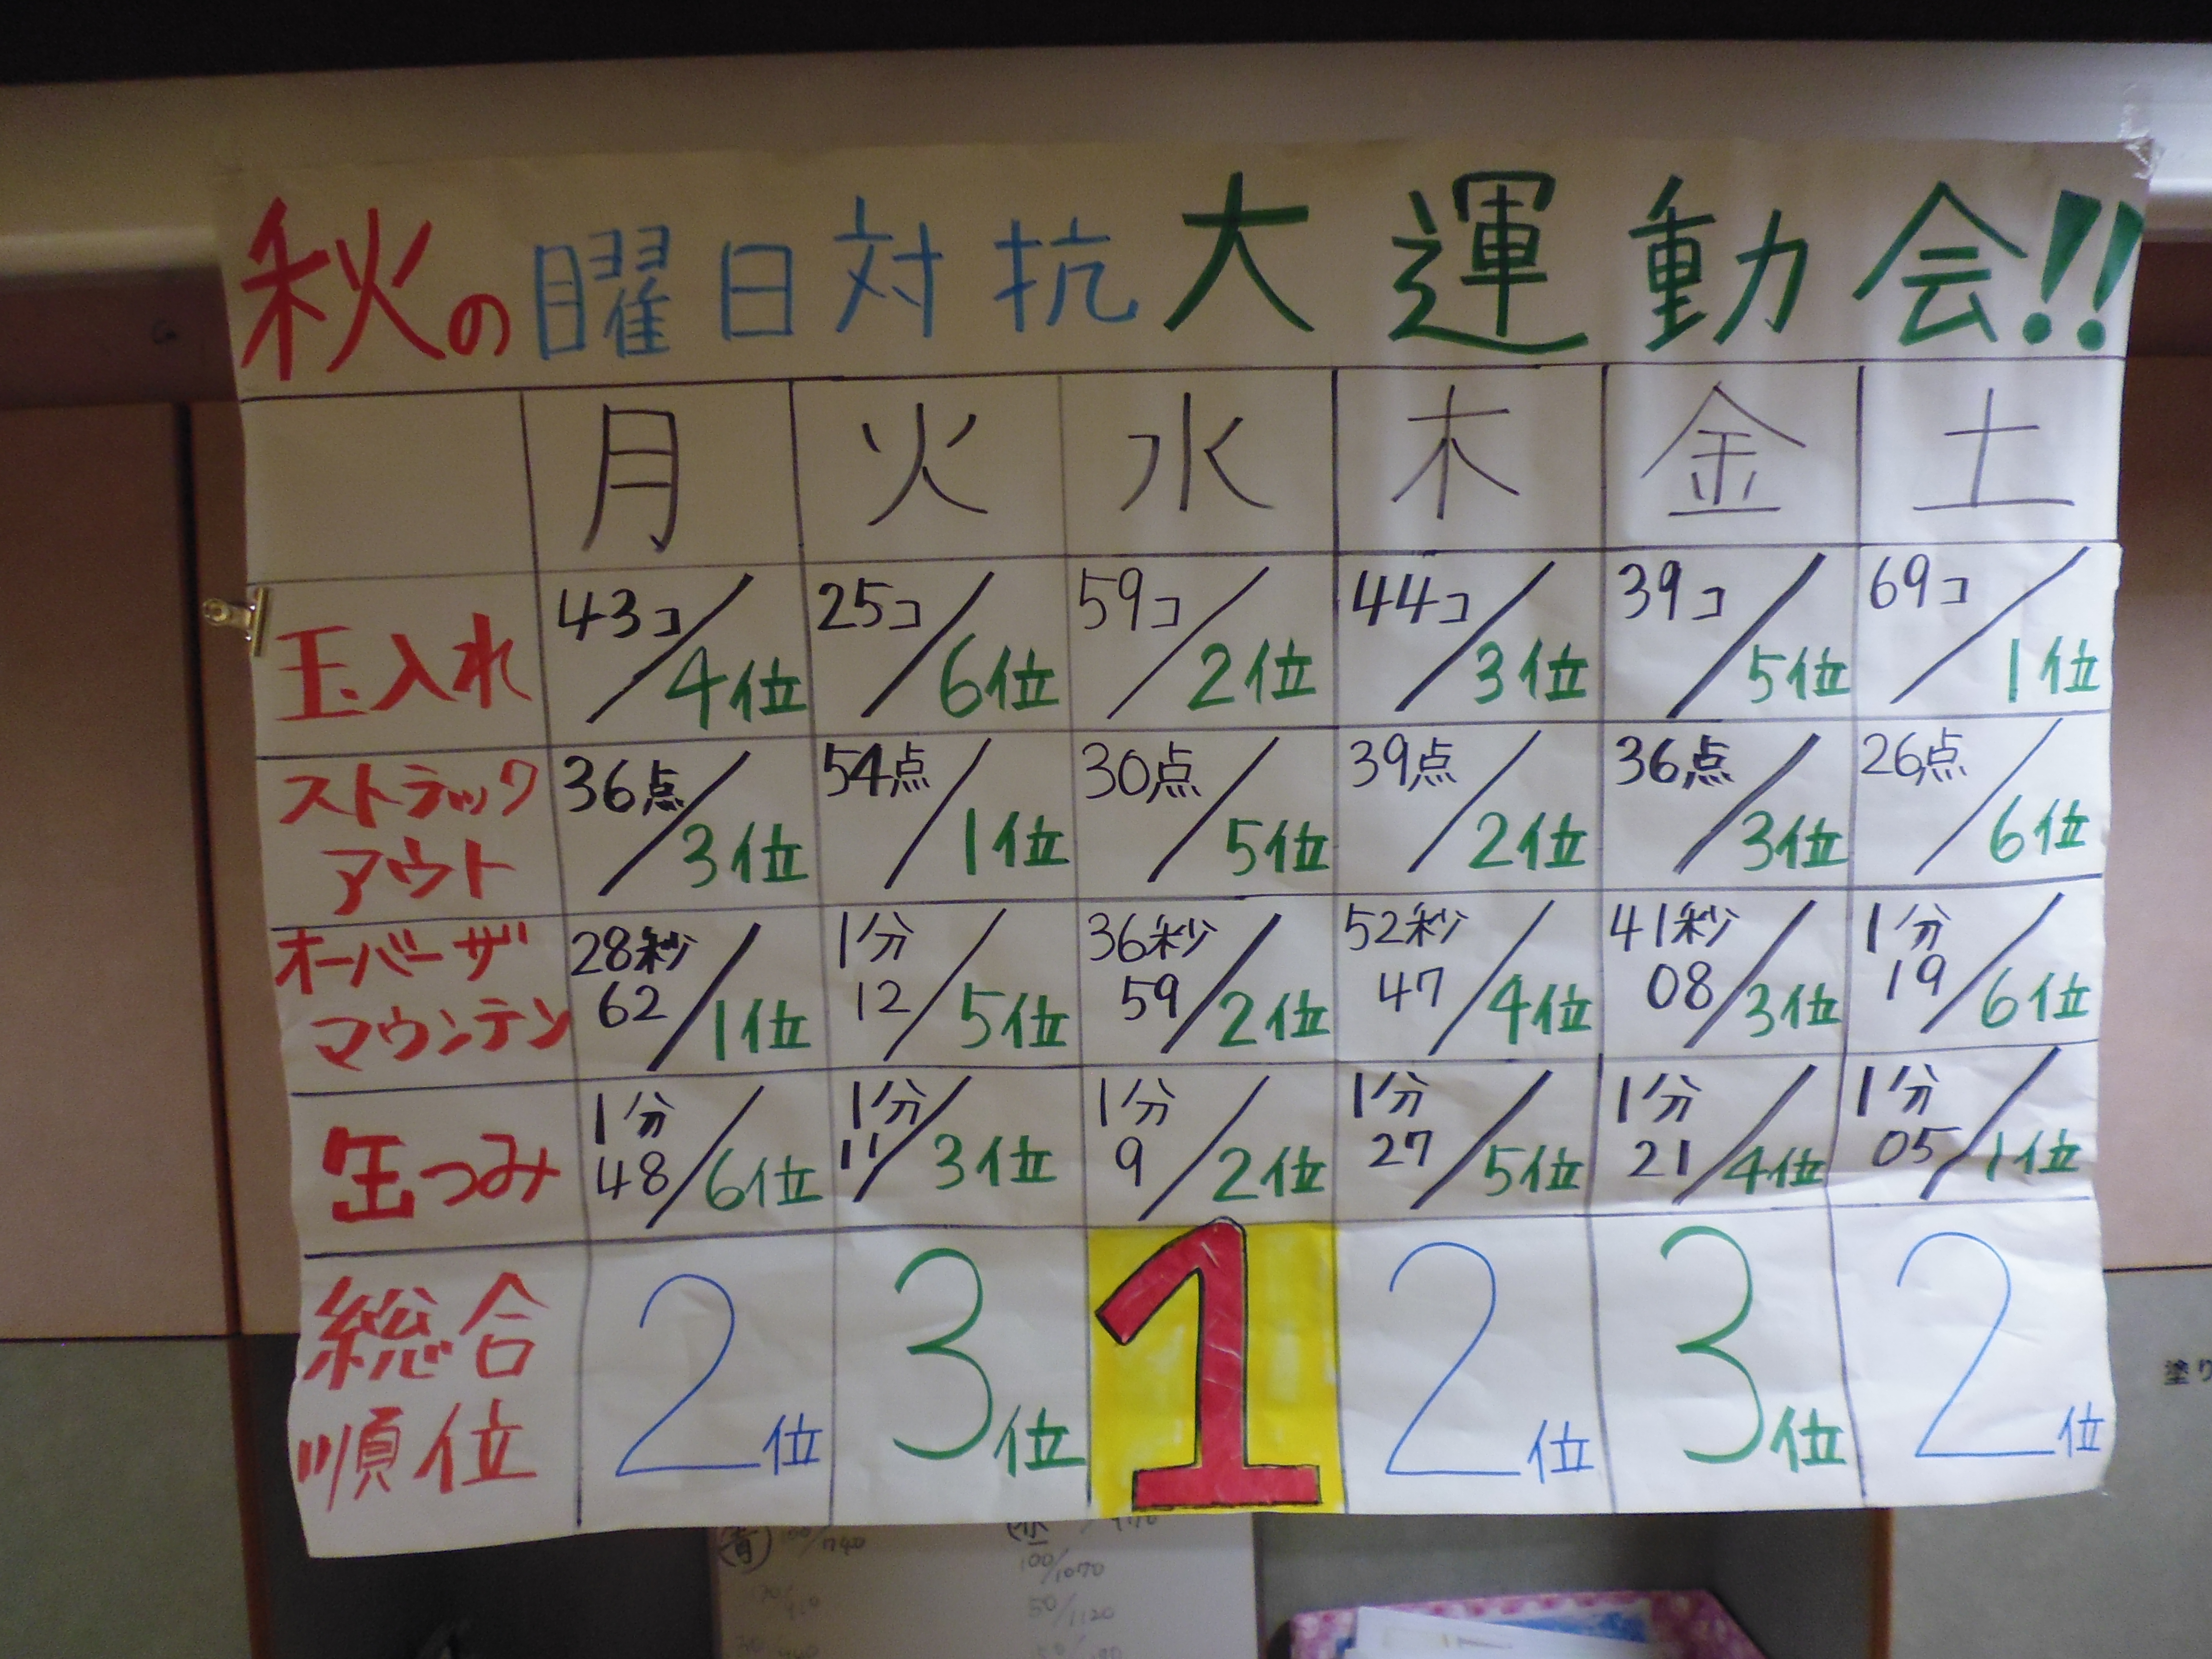 秋の曜日対抗大運動会!!
月 火 水 木 金 土
玉入れ 43コ/4位 25コ/6位 59コ/2位 44コ/3位 39コ/5位 69コ/1位
ストラックアウト 36点/3位 54点/1位 30点/5位 39点/2位 36点/3位 26点/6位
オーバーザマウンテン 28秒62/1位 1分12/5位 36秒59/2位 52秒47/4位 41秒08/3位 1分19/6位
缶つみ 1分48/6位 1分11/3位 1分9/2位 1分27/5位 1分21/4位 1分05/1位
総合順位 2位 3位 1 2位 3位 2位
塗り
青 100/740
100/1070
50/1120